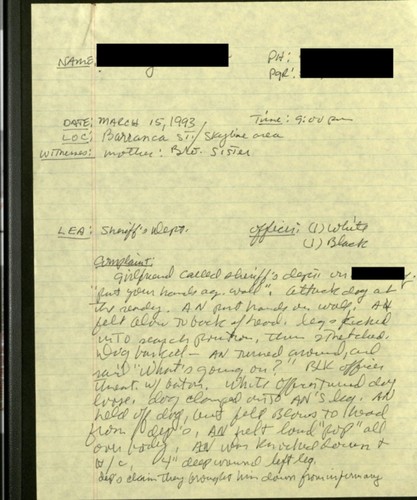 NAME:
PH:
Pgr:
DATE: MARCH 15, 1993 Time: 9:00 pm
LOC: Barranca St./Skyline area
Witnesses: mother: Bro. Sister
LEA: Sheriff's Dept. Officer: (1) White
(1) Black
Complaint:
Girlfriend called sheriff's dep'ts on
"put your hands ag. wall". Attack dog at
the ready. AN put hands on wall. AN
felt blow to back of head. legs kicked
into search position, then stretched.
Dog barked — AN turned around, and
said "What's going on?" BLK officer
threat. w/ baton. White officer turned dog
loose. dog clamped onto AN'S leg. AN
held off dog, but felt Blows to head
from dep's, AN felt loud "pop" all
over body, AN was knocked down &
4" deep wound left leg.
dep's claim they brought him down from infirmary